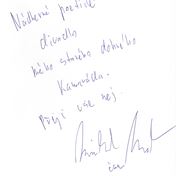 Nádherné poetické
divadlo
mého starého dobrého
kamaráda.
přeji vše nej.